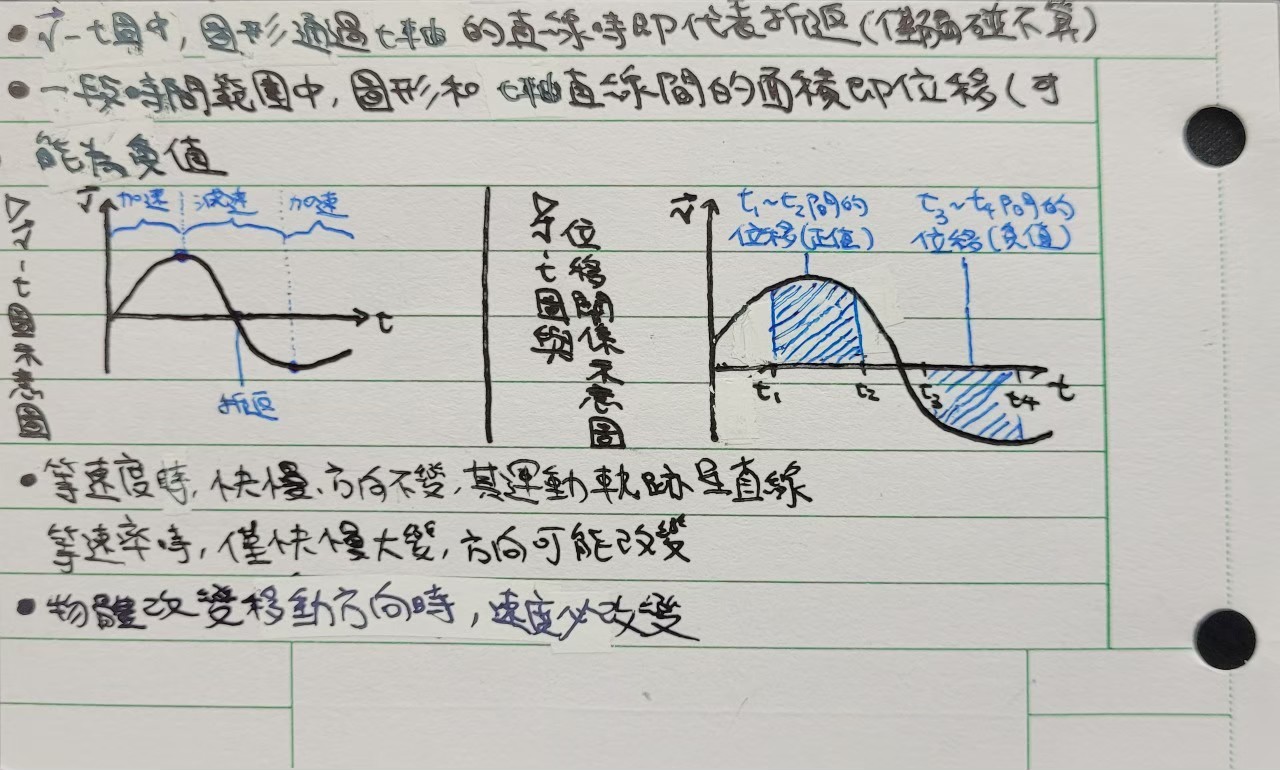 • v-t圖中，圖形通過t軸的直線時即代表折返(僅觸碰不算)
• 一段時間範圍中，圖形和t軸直線間的面積即位移(可
能為負值
▷v-t圖示意圖
v
加速 減速 加速
t
折返
▷v-t圖與
位移關係示意圖
v
t₁~t₂間的
位移(正值)
t₃~t₄間的
位移(負值)
t₁ t₂ t₃ t₄ t
• 等速度時，快慢、方向不變，其運動軌跡是直線
等速率時，僅快慢大變，方向可能改變
• 物體改變移動方向時，速度必改變